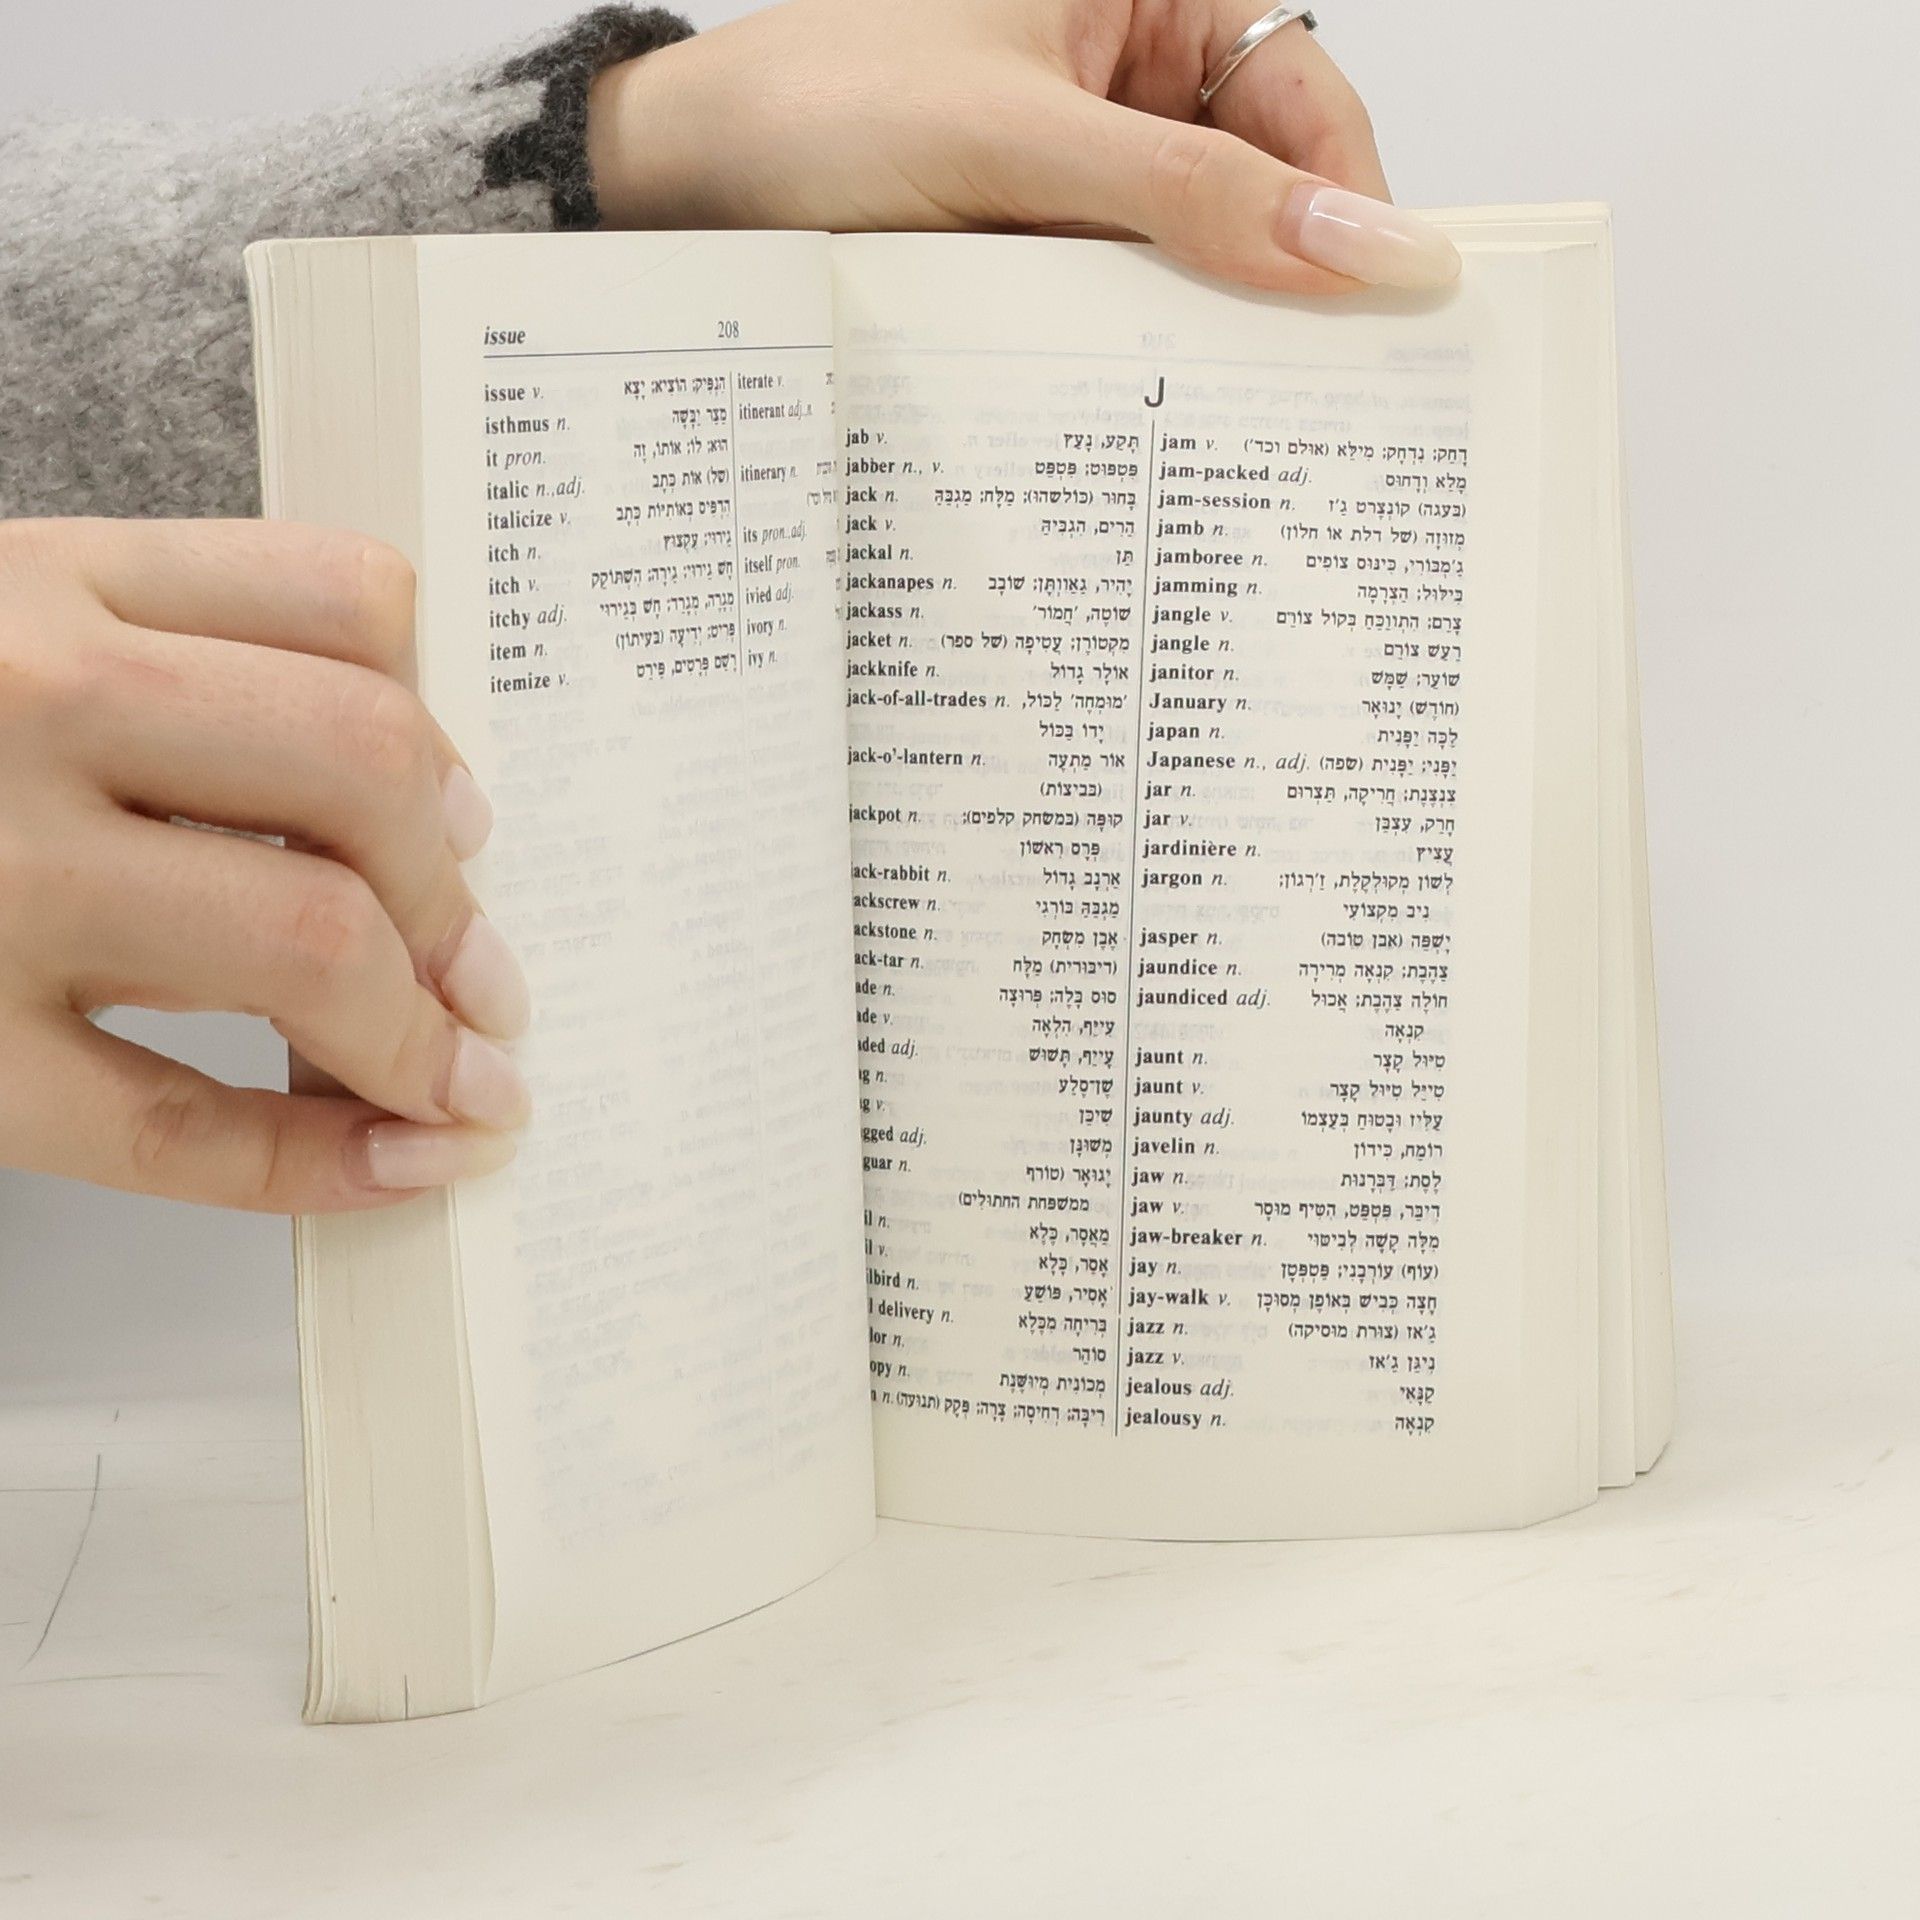 issue 208
issue v. הִנְפִּיק; הוֹצִיא; יָצָא
isthmus n. מֵצַר יַבָּשָׁה
it pron. הוּא; לוֹ; אוֹתוֹ, זֶה
italic n.,adj. (של) אוֹת כְּתָב
italicize v. הִדְפִּיס בְּאוֹתִיּוֹת כְּתָב
itch n. גֵירוּי; עִקְצוּץ
itch v. חָשׁ גֵירוּי; גֵירָה; הִשְׁתּוֹקֵק
itchy adj. מְגָרֶה, מְגָרֵד; חָשׁ בְּגֵירוּי
item n. פְּרִיט; יְדִיעָה (בּעיתון)
itemize v. רָשַׁם פְּרָטִים, פֵּירֵט
iterate v.
itinerant adj.,n.
itinerary n.
its pron.,adj.
itself pron.
ivied adj.
ivory n.
ivy n.
J
jab v. תָּקַע, נָעַץ
jabber n., v. פִּטְפּוּט; פִּטְפֵּט
jack n. בָּחוּר (כּוֹלשהוּ); מַלָּח; מַגְבֵּהַּ
jack v. הֵרִים, הִגְבִּיהַּ
jackal n. תַּן
jackanapes n. יָהִיר, גַאַוְותָן; שׁוֹבָב
jackass n. שׁוֹטֶה, 'חֲמוֹר'
jacket n. מִקְטוֹרֶן; עֲטִיפָה (שׁל ספר)
jackknife n. אוֹלָר גָדוֹל
jack-of-all-trades n. 'מוּמְחֶה' לַכּוֹל,
יָדוֹ בַּכּוֹל
jack-o'-lantern n. אוֹר מַתְעֶה
(בּביצוֹת)
jackpot n. קוּפָּה (בּמשׂחק קלפים);
פְּרָס רִאשׁוֹן
ack-rabbit n. אַרְנָב גָדוֹל
ackscrew n. מַגְבֵּהַּ בּוֹרְגִי
ackstone n. אֶבֶן מִשְׂחָק
ack-tar n. (דיבּוּרית) מַלָּח
ade n. סוּס בָּלֶה; פְּרוּצָה
ade v. עִייֵּף, הִלְאָה
aded adj. עָיֵיף, תָּשׁוּשׁ
g n. שֶׁן־סֶלַע
g v. שִׁיכֵּן
gged adj. מְשׁוּנָן
guar n. יָגוּאָר (טוֹרף
ממשׁפּחת החתוּלים)
il n. מַאֲסָר, כֶּלֶא
il v. אָסַר, כָּלָא
ilbird n. אָסִיר, פּוֹשֵׁעַ
l delivery n. בְּרִיחָה מִכֶּלֶא
lor n. סוֹהֵר
opy n. מְכוֹנִית מְיוּשֶּׁנֶת
n. רִיבָּה; דְחִיסָה; צָרָה; פְּקָק (תנוּעה)
jam v. דָחַק; נִדְחָק; מִילֵּא (אוּלם וכד')
jam-packed adj. מָלֵא וְדָחוּס
jam-session n. (בּעגה) קוֹנְצֶרְט גֶ'ז
jamb n. מְזוּזָה (שׁל דלת אוֹ חלוֹן)
jamboree n. גַ'מְבּוֹרִי, כִּינּוּס צוֹפִים
jamming n. בִּילּוּל; הַצְרָמָה
jangle v. צָרַם; הִתְווַכֵּחַ בְּקוֹל צוֹרֵם
jangle n. רַעַשׁ צוֹרֵם
janitor n. שׁוֹעֵר; שַׁמָּשׁ
January n. (חוֹדשׁ) יָנוּאָר
japan n. לַכָּה יַפָּנִית
Japanese n., adj. יַפָּנִי; יַפָּנִית (שׂפה)
jar n. צִנְצֶנֶת; חֲרִיקָה, תַּצְרוּם
jar v. חָרַק, עִצְבֵּן
jardinière n. עָצִיץ
jargon n. לְשׁוֹן מְקוּלְקֶלֶת, זַ'רְגוֹן;
נִיב מִקְצוֹעִי
jasper n. יָשְׁפֵה (אבן טוֹבה)
jaundice n. צַהֶבֶת; קִנְאָה מְרִירָה
jaundiced adj. חוֹלֵה צַהֶבֶת; אֲכוּל
קִנְאָה
jaunt n. טִיּוּל קָצָר
jaunt v. טִייֵּל טִיּוּל קָצָר
jaunty adj. עַלִּיז וּבָטוּחַ בְּעַצְמוֹ
javelin n. רוֹמַח, כִּידוֹן
jaw n. לֶסֶת; דַּבְּרָנוּת
jaw v. דִיבֵּר, פִּטְפֵּט, הִטִּיף מוּסָר
jaw-breaker n. מִלָּה קָשָׁה לְבִיטּוּי
jay n. (עוֹף) עוֹרְבָנִי; פַּטְפְּטָן
jay-walk v. חָצָה כְּבִישׁ בְּאוֹפֶן מְסוּכָּן
jazz n. גֶ'אז (צוּרת מוּסיקה)
jazz v. נִיגֵּן גֶ'אז
jealous adj. קַנָּאִי
jealousy n. קִנְאָה